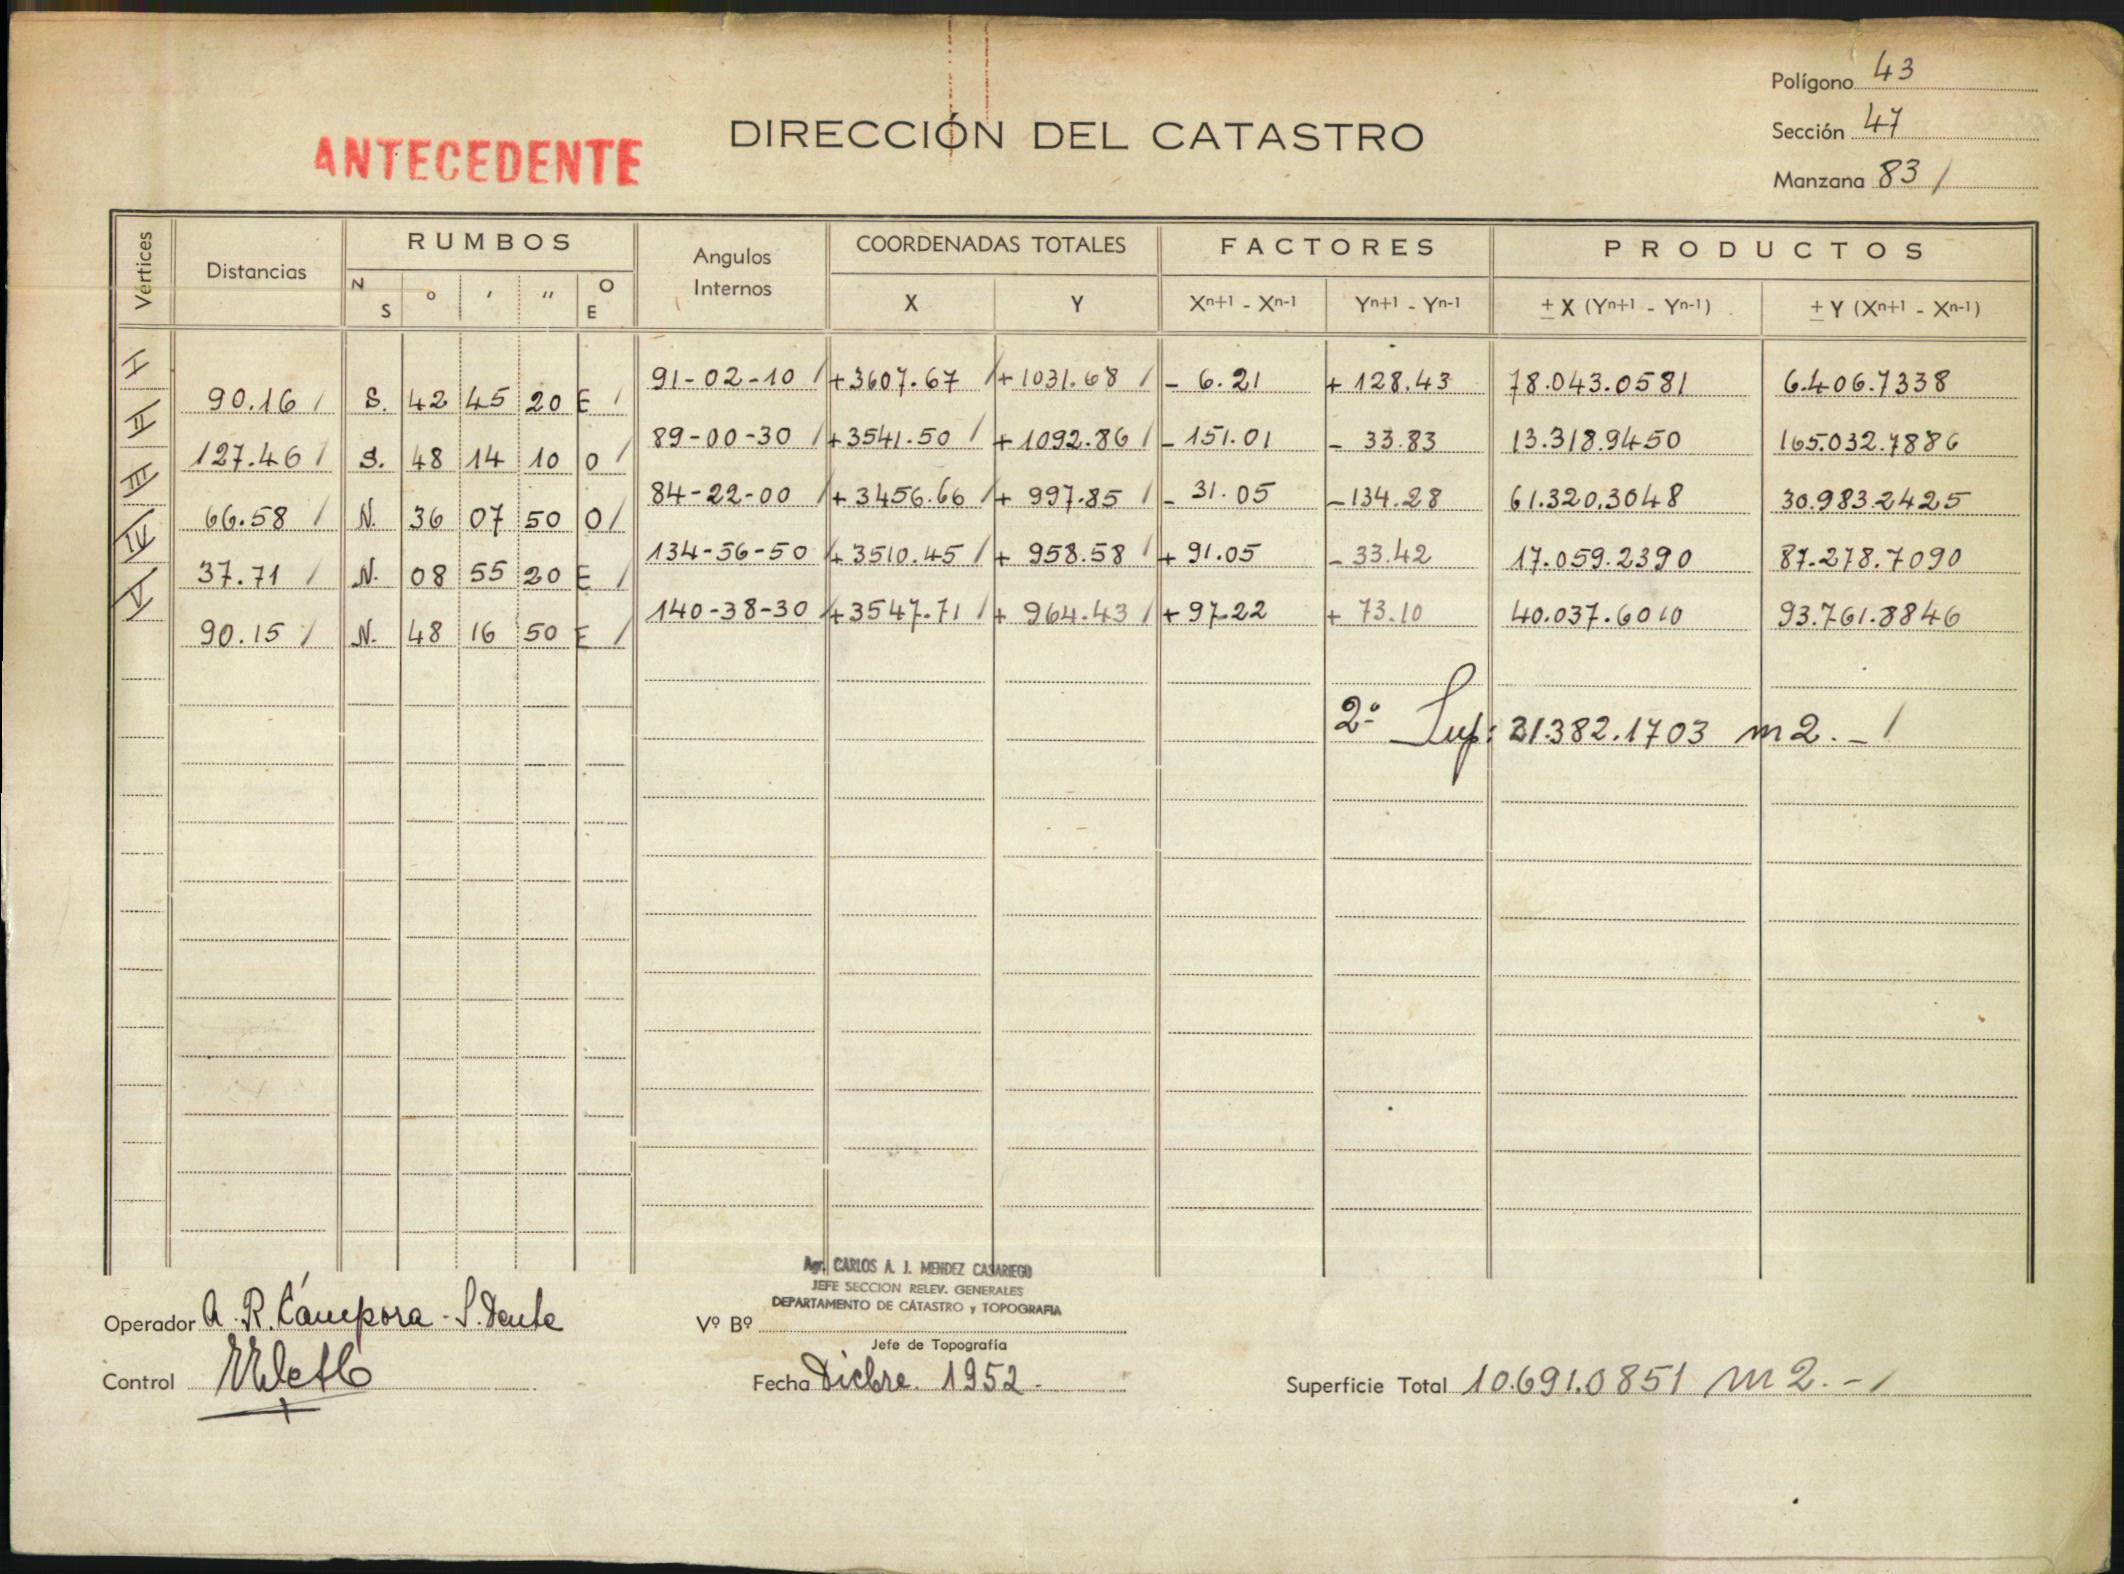 Polígono 43
ANTECEDENTE
DIRECCIÓN DEL CATASTRO
Sección 47
Manzana 83 /
Vértices Distancias RUMBOS Angulos Internos COORDENADAS TOTALES FACTORES PRODUCTOS
N S ° ' " O E X Y Xn+1 - Xn-1 Yn+1 - Yn-1 ± X (Yn+1 - Yn-1) ± Y (Xn+1 - Xn-1)
I 91-02-10 / +3607.67 / +1031.68 / - 6.21 + 128.43 78.043.0581 6.406.7338
90.16 / S. 42 45 20 E /
II 89-00-30 / +3541.50 / +1092.86 / - 151.01 - 33.83 13.318.9450 165.032.7886
127.46 / S. 48 14 10 O /
III 84-22-00 / +3456.66 / + 997.85 / - 31.05 -134.28 61.320.3048 30.983.2425
66.58 / N. 36 07 50 O /
IV 134-56-50 / +3510.45 / + 958.58 / + 91.05 - 33.42 17.059.2390 87.278.7090
37.71 / N. 08 55 20 E /
V 140-38-30 / +3547.71 / + 964.43 / + 97.22 + 73.10 40.037.6010 93.761.8846
90.15 / N. 48 16 50 E /
2ª Sup: 21.382.1703 m2.- /
Agr. CARLOS A. J. MENDEZ CASARIEGO
JEFE SECCION RELEV. GENERALES
DEPARTAMENTO DE CATASTRO y TOPOGRAFIA
Operador A. R. Cámpora - S. Dente
Vº Bº
Jefe de Topografía
Control
Fecha Dicbre. 1952.-
Superficie Total 10.691.0851 m2.- /